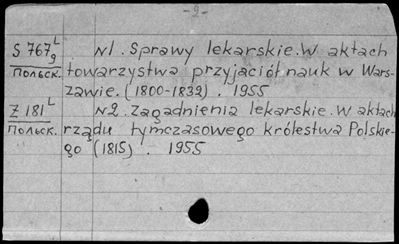 - 9 -
S 767 L/9 N1. Sprawy lekarskie. W aktach
польск. towarzystwa przyjaciół nauk w Wars-
zawie. (1800-1832). 1955
Z 181 L N2. Zagadnienia lekarskie. W aktach
польск. rządu tymczasowego królestwa Polskie-
go (1815). 1955